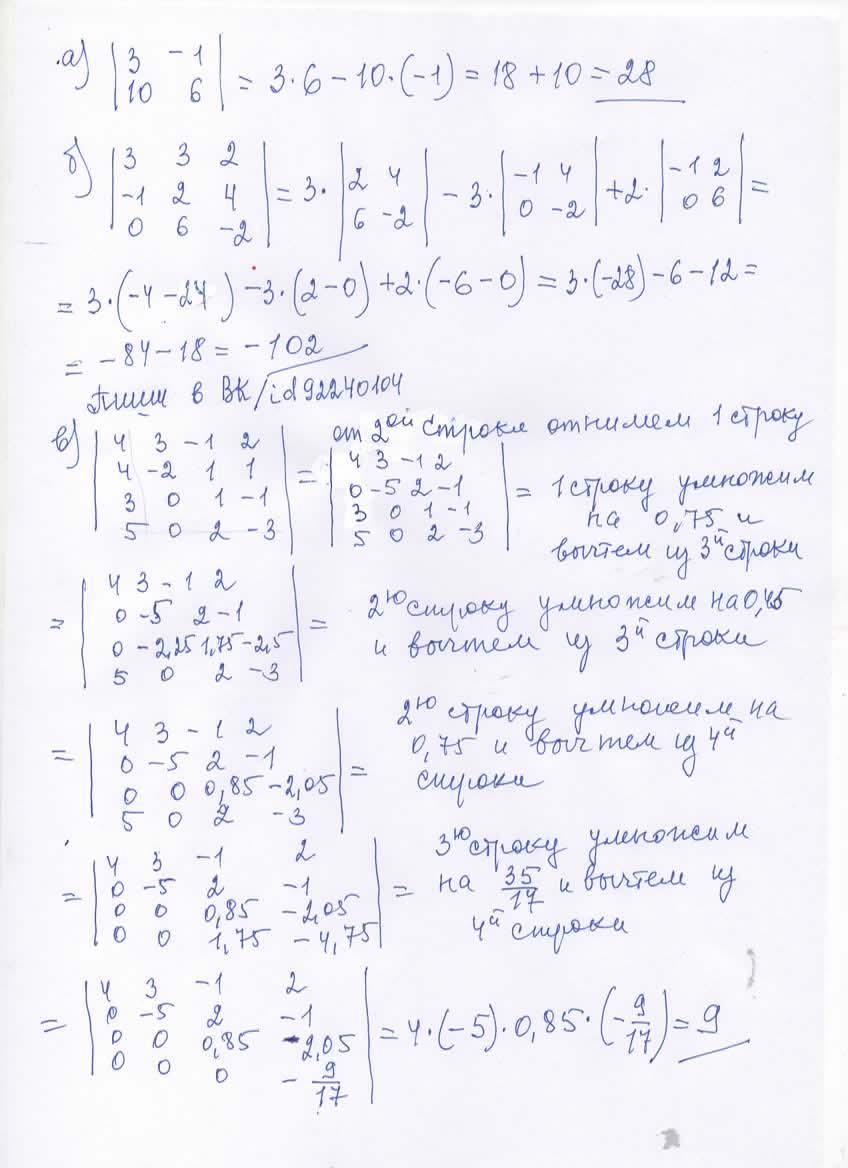 а) | 3 -1 | = 3·6 - 10·(-1) = 18 + 10 = 28
| 10 6 |
б) | 3 3 2 |
| -1 2 4 | = 3· | 2 4 | - 3· | -1 4 | + 2· | -1 2 | =
| 0 6 -2 | | 6 -2 | | 0 -2 | | 0 6 |
= 3·(-4-24) - 3·(2-0) + 2·(-6-0) = 3·(-28) - 6 - 12 =
= -84 - 18 = -102
Пиши в ВК/id92240104
от 2ой строки отнимем 1 строку
в) | 4 3 -1 2 | = | 4 3 -1 2 |
| 4 -2 1 1 | | 0 -5 2 -1 |
| 3 0 1 -1 | | 3 0 1 -1 |
| 5 0 2 -3 | | 5 0 2 -3 |
= 1 строку умножим
на 0,75 и
вычтем из 3й строки
= | 4 3 -1 2 |
| 0 -5 2 -1 |
| 0 -2,25 1,75 -2,5 |
| 5 0 2 -3 |
= 2ю строку умножим на
и вычтем из 3й строки
= | 4 3 -1 2 |
| 0 -5 2 -1 |
| 0 0 0,85 -2,05 |
| 5 0 2 -3 |
= 2ю строку умножим на
0,75 и вычтем из 4й
строки
= | 4 3 -1 2 |
| 0 -5 2 -1 |
| 0 0 0,85 -2,05 |
| 0 0 1,75 -4,75 |
= 3ю строку умножим
на 35/17 и вычтем из
4й строки
= | 4 3 -1 2 |
| 0 -5 2 -1 |
| 0 0 0,85 -2,05 |
| 0 0 0 -9/17 |
= 4·(-5)·0,85·(-9/17) = 9